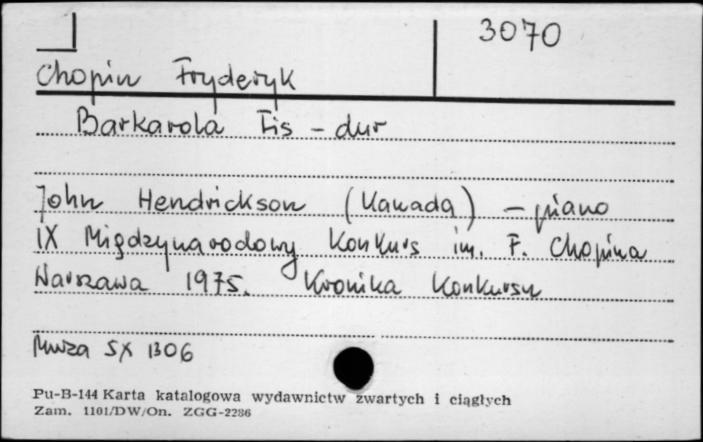 3070
Chopin Fryderyk
Barkarola Fis - dur
John Hendrickson (Kanada) - piano
IX Międzynarodowy Konkurs im. F. Chopina
Warszawa 1975. Kronika Konkursu
Muza SX 1306
Pu-B-144 Karta katalogowa wydawnictw zwartych i ciągłych
Zam. 1101/DW/On. ZGG-2286